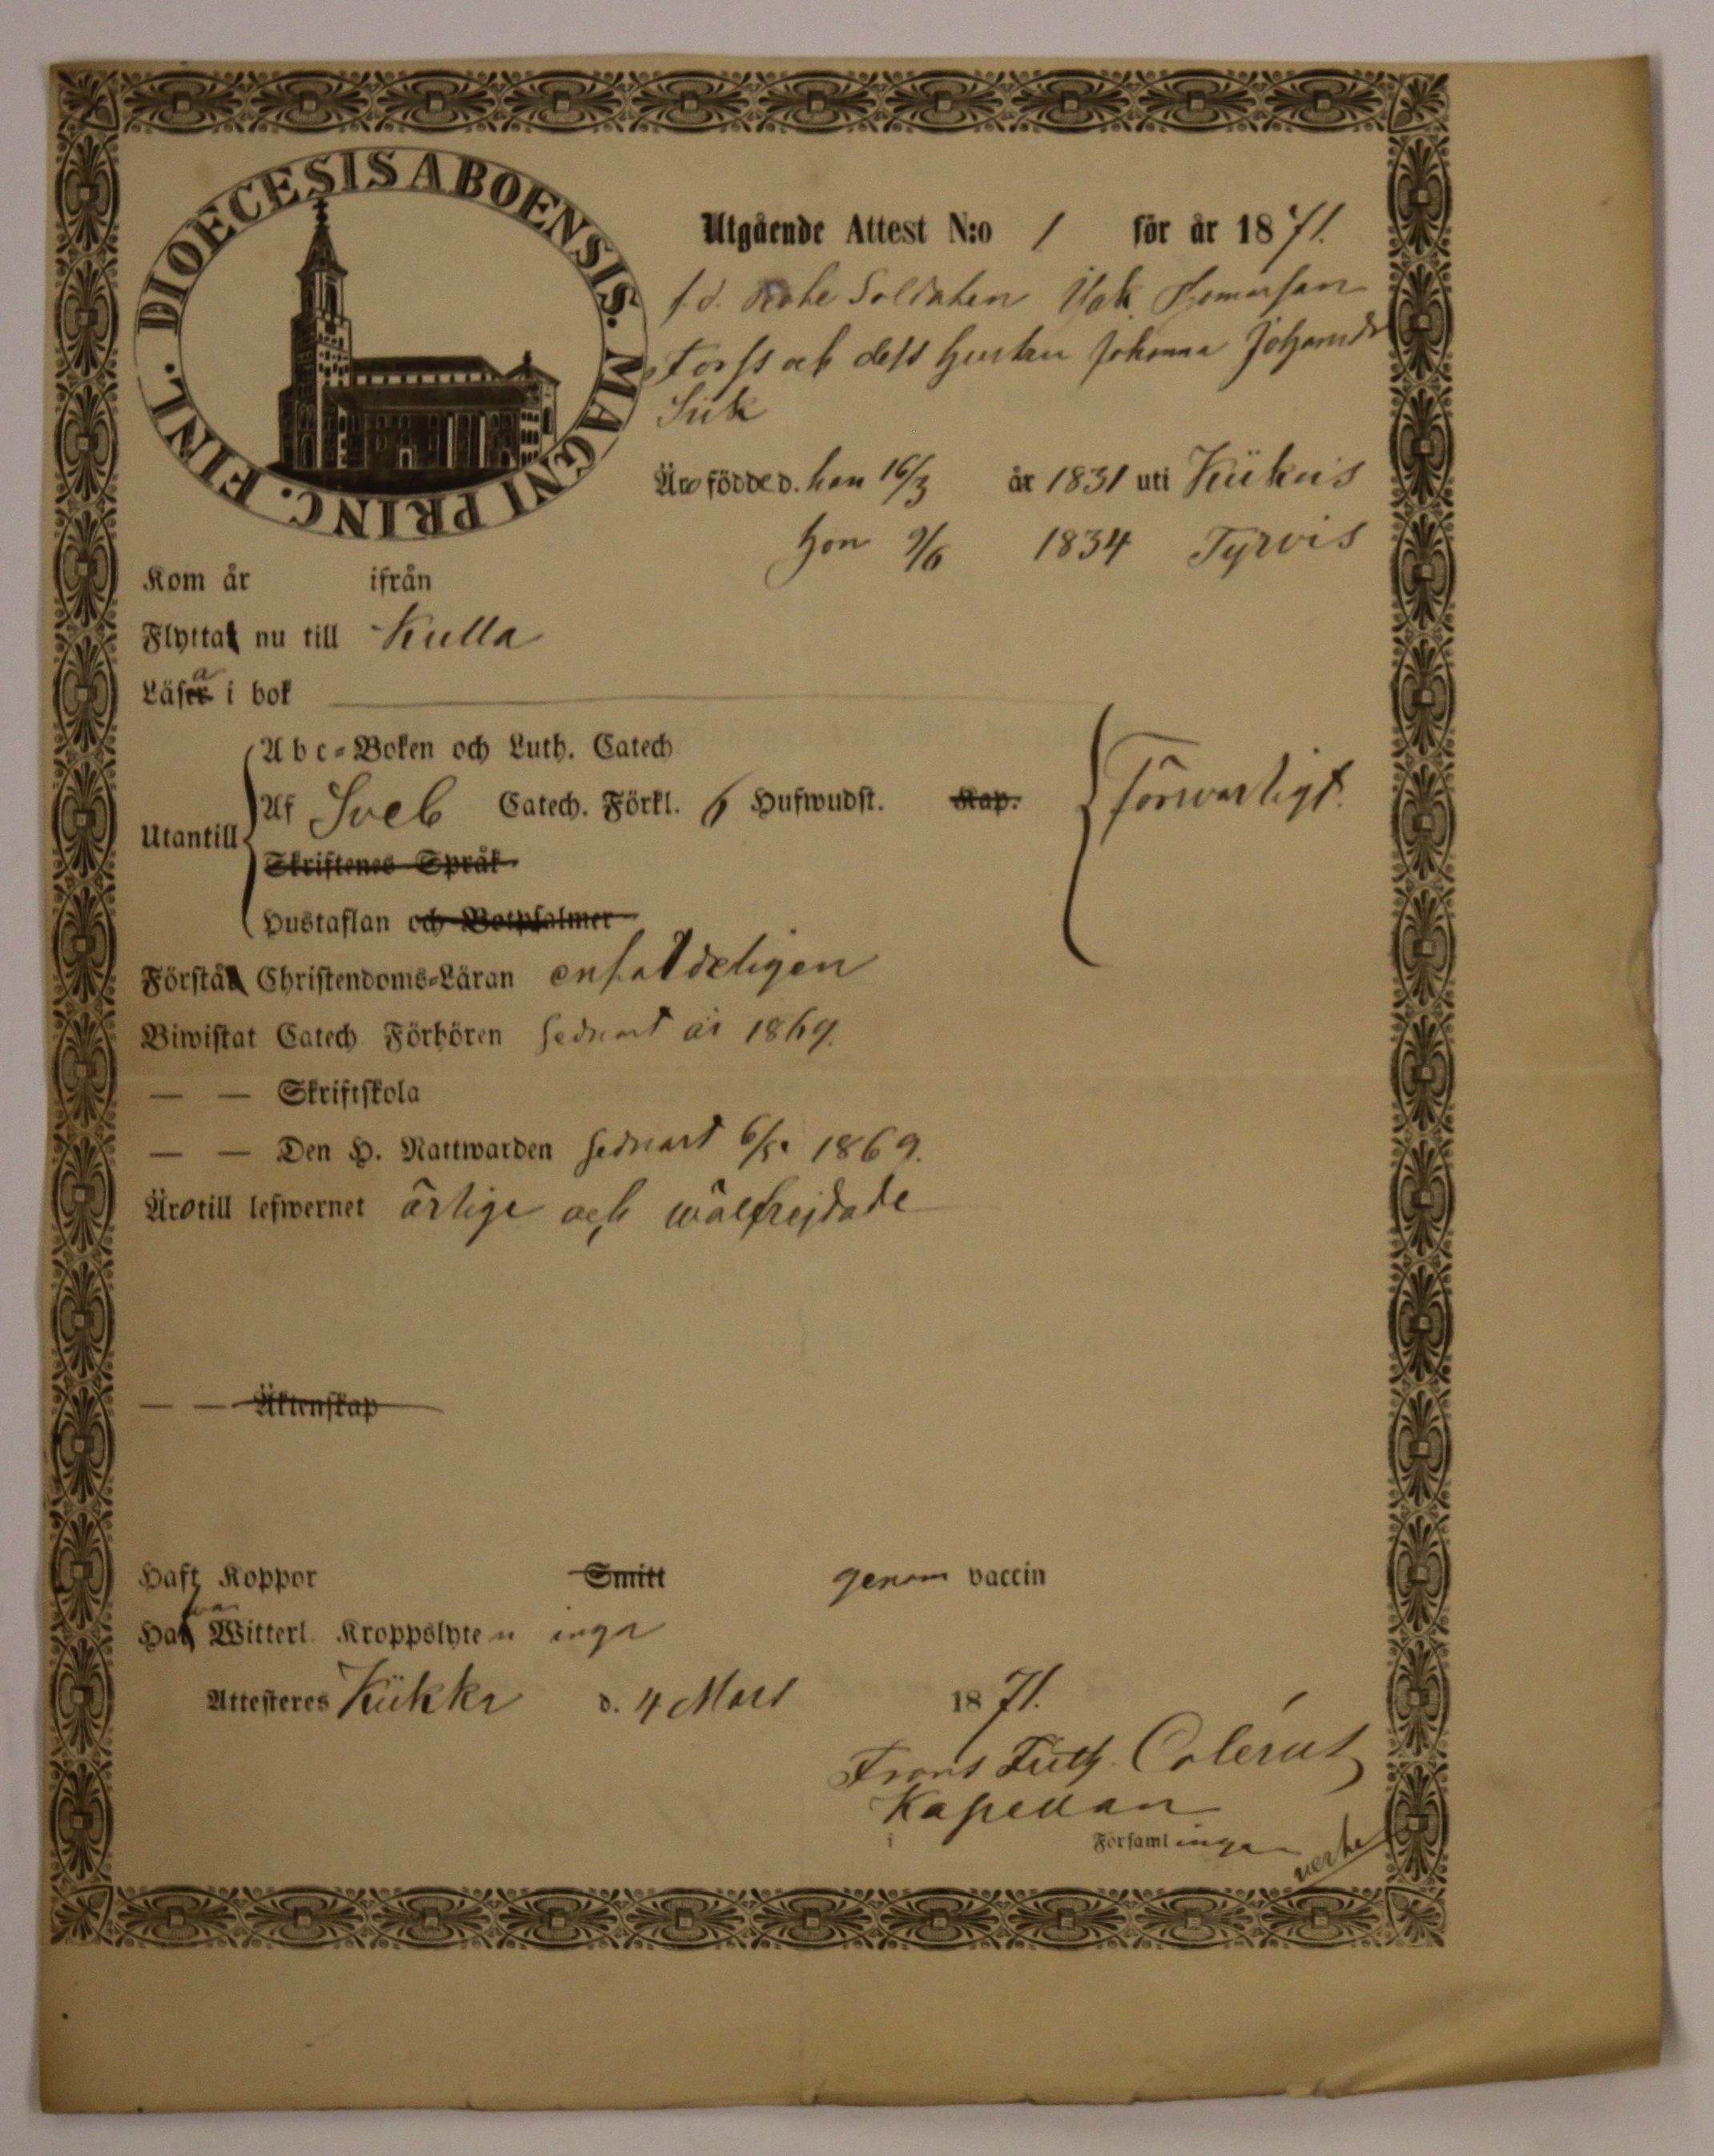 DIOECESIS ABOENSIS. MAGNI PRINC. FINL.
Utgående Attest N:o 1 för år 1871.
f.d. Rote Soldaten Isak
Forss och dess hustru Johanna Johansdr
Äro födde d. han 16/3 år 1831 uti Kiikois
hon 9/6 1834 Tyrvis
Kom år ifrån
Flytta nu till Kulla
Läsa i bok
Abc-Boken och Luth. Catech
Utantill Af Sveb Catech. Förkl. 6 Hufwudst. Kap.
Försvarligt.
Skriftenes Språk
Hustaflan och Botpsalmer
Förstå Christendoms-Läran enfaldeligen
Biwistat Catech Förhören sednast år 1869.
— — Skriftskola
— — Den H. Nattwarden sednast 6/5. 1869.
Äro till lefwernet ärlige och wälfrejdade
— — Äktenskap
Haft Koppor Smitt genom vaccin
Hafva Witterl. Kroppslyten inga
Attesteres Kiikka d. 4 Mars 1871.
Frans Colérus
Kapellan
i Församlingen